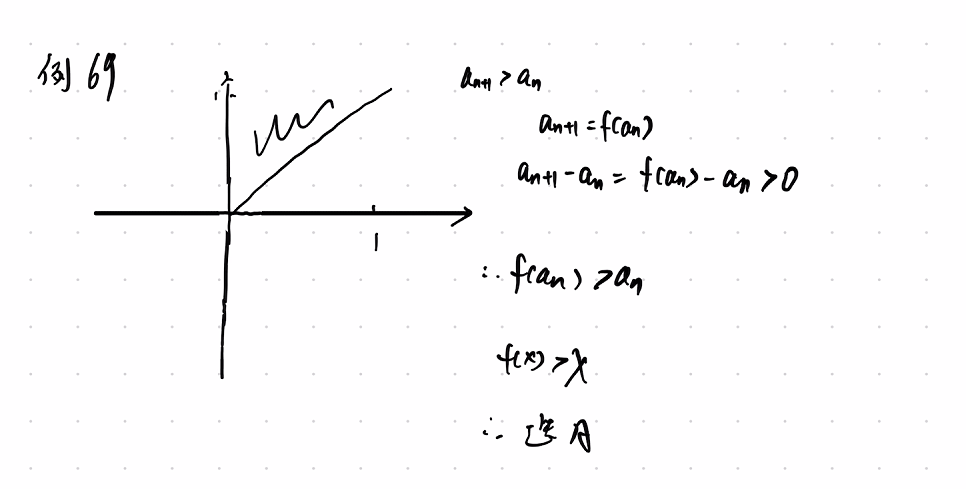 例 69
1
1
aₙ₊₁ > aₙ
aₙ₊₁ = f(aₙ)
aₙ₊₁ - aₙ = f(aₙ) - aₙ > 0
∴ f(aₙ) > aₙ
f(x) > x
∴ 选 A